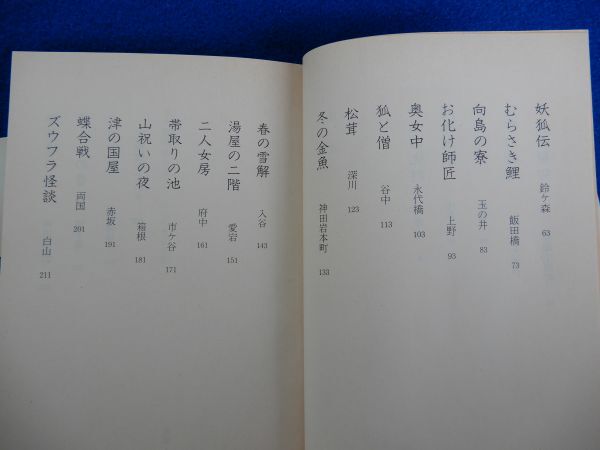 妖狐伝 鈴ケ森 63
むらさき鯉 飯田橋 73
向島の寮 玉の井 83
お化け師匠 上野 93
奥女中 永代橋 103
狐と僧 谷中 113
松茸 深川 123
冬の金魚 神田岩本町 133
春の雪解 入谷 143
湯屋の二階 愛宕 151
二人女房 府中 161
帯取りの池 市ケ谷 171
山祝いの夜 箱根 181
津の国屋 赤坂 191
蝶合戦 両国 201
ズウフラ怪談 白山 211